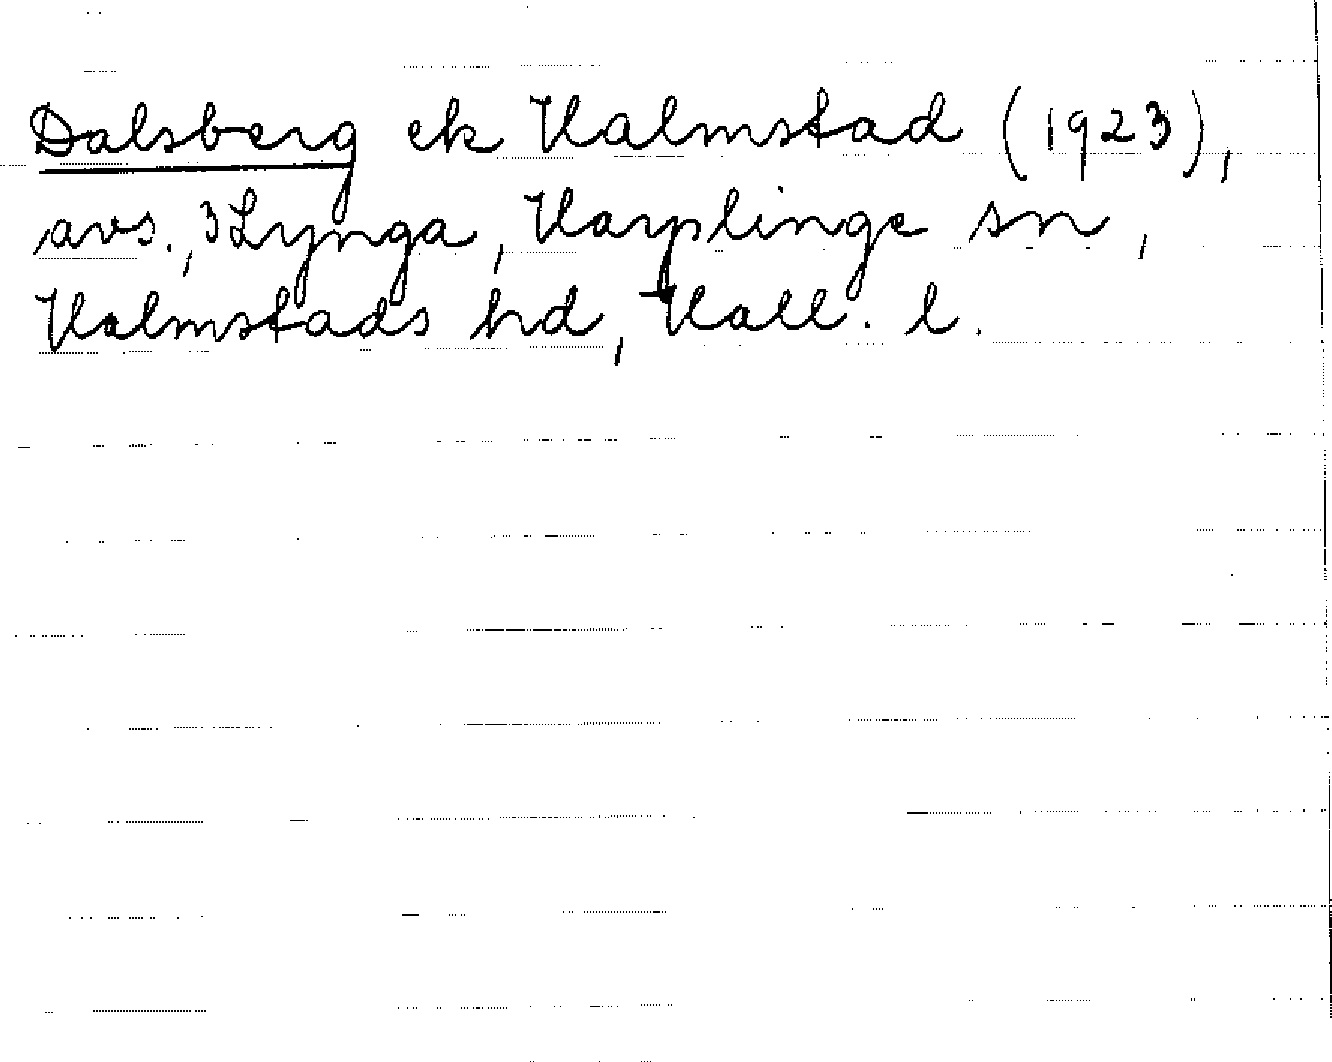 Dalsberg ek Halmstad (1923),
avs., 3 Lynga, Harplinge sn,
Halmstads hd, Hall. l.